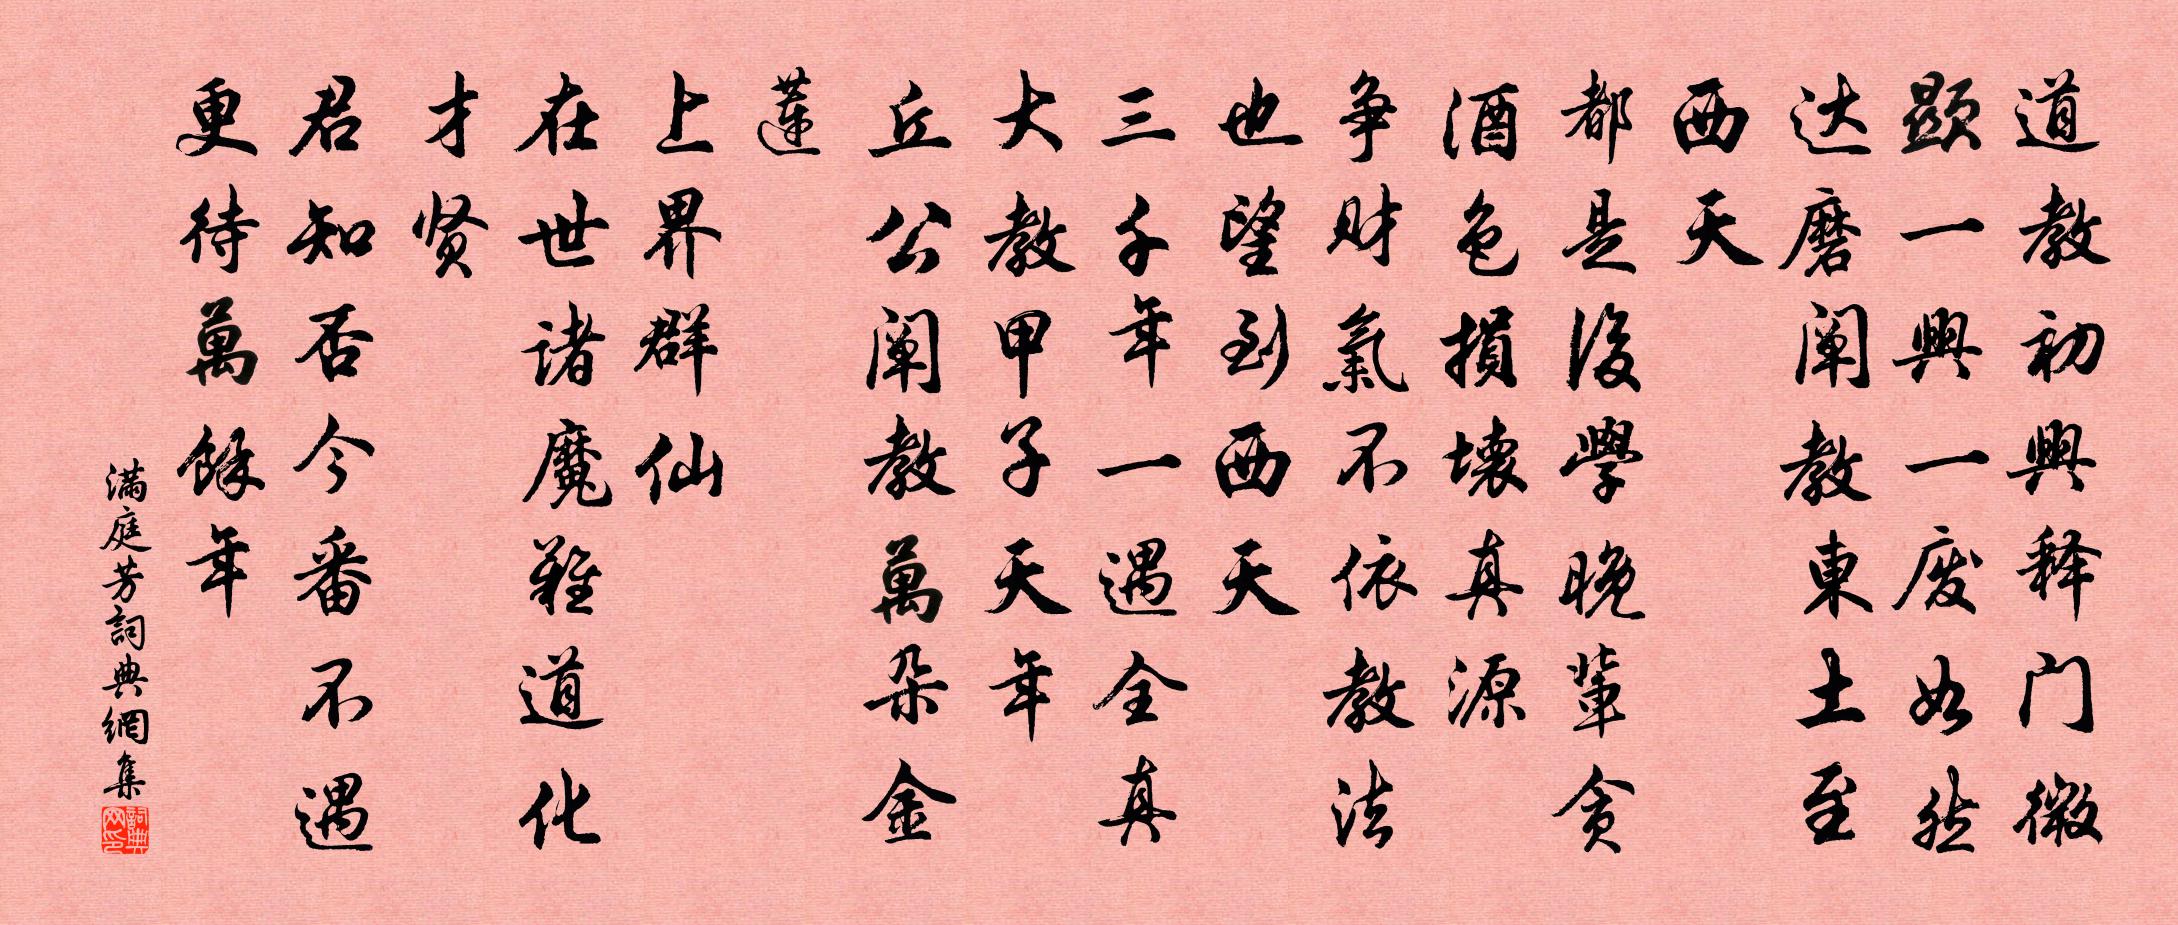 道教初興释门微
顯一興一废如然
达磨阐教東土至
西天
都是後學晚輩贪
酒色損壞真源
争财氣不依教法
也望到西天
三千年一遇全真
大教甲子天年
丘公阐教萬朵金
蓮
上界群仙
在世诸魔難道化
才贤
君知否今番不遇
更待萬餘年
满庭芳詞典網集
詞典网印